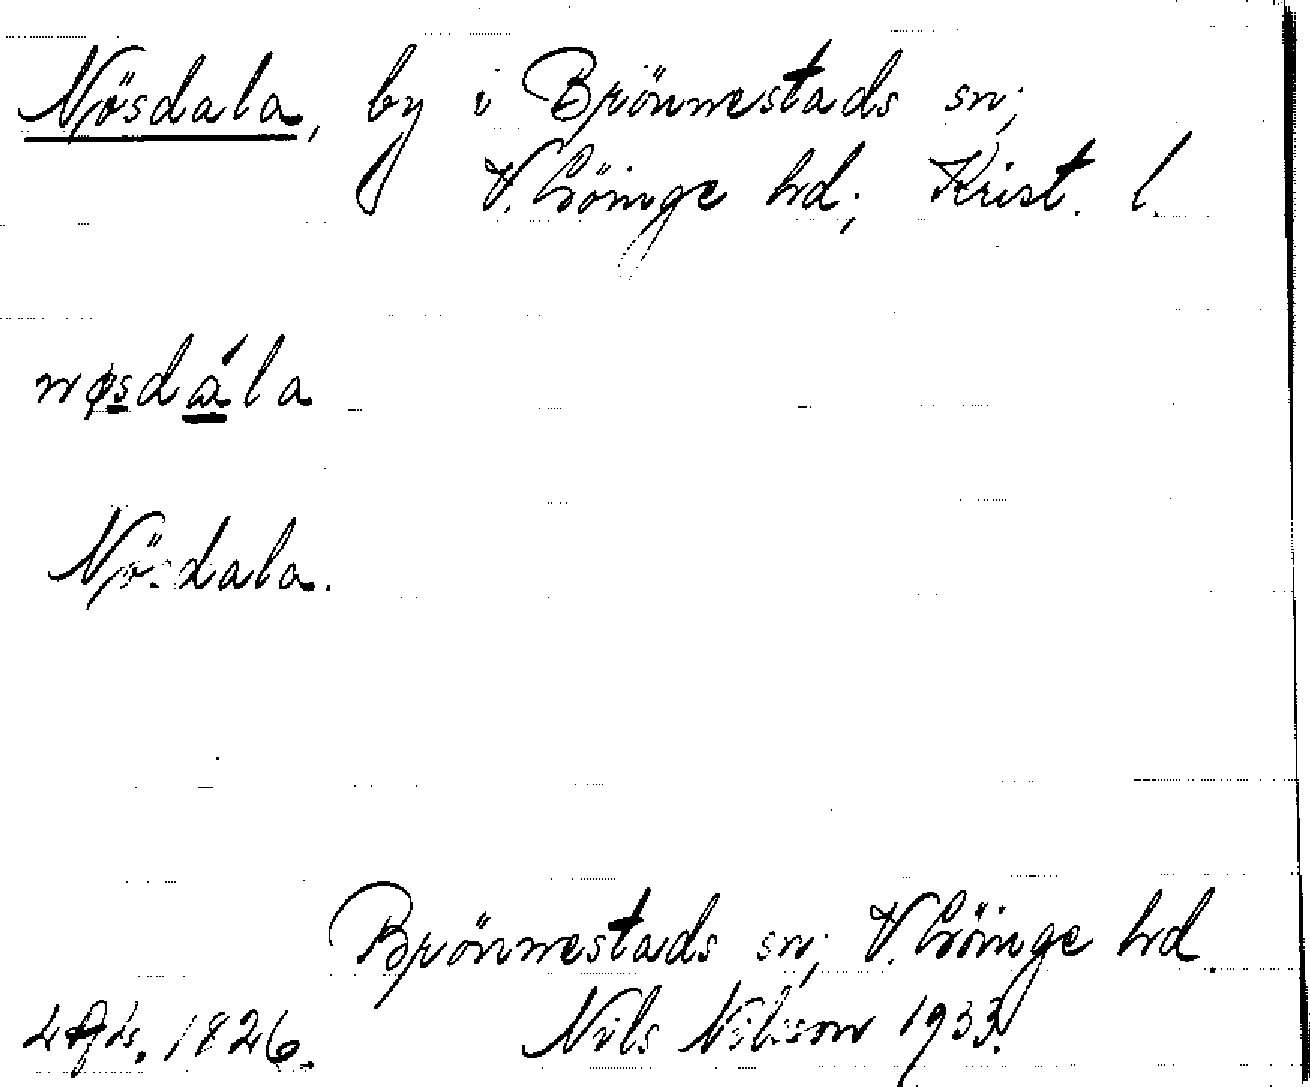 Nösdala, by i Brönnestads sn;
V. Göinge hd; Krist. l.
nøsdála
Nösdala.
Brönnestads sn; V. Göinge hd.
1826. Nils Nilsson 1933.